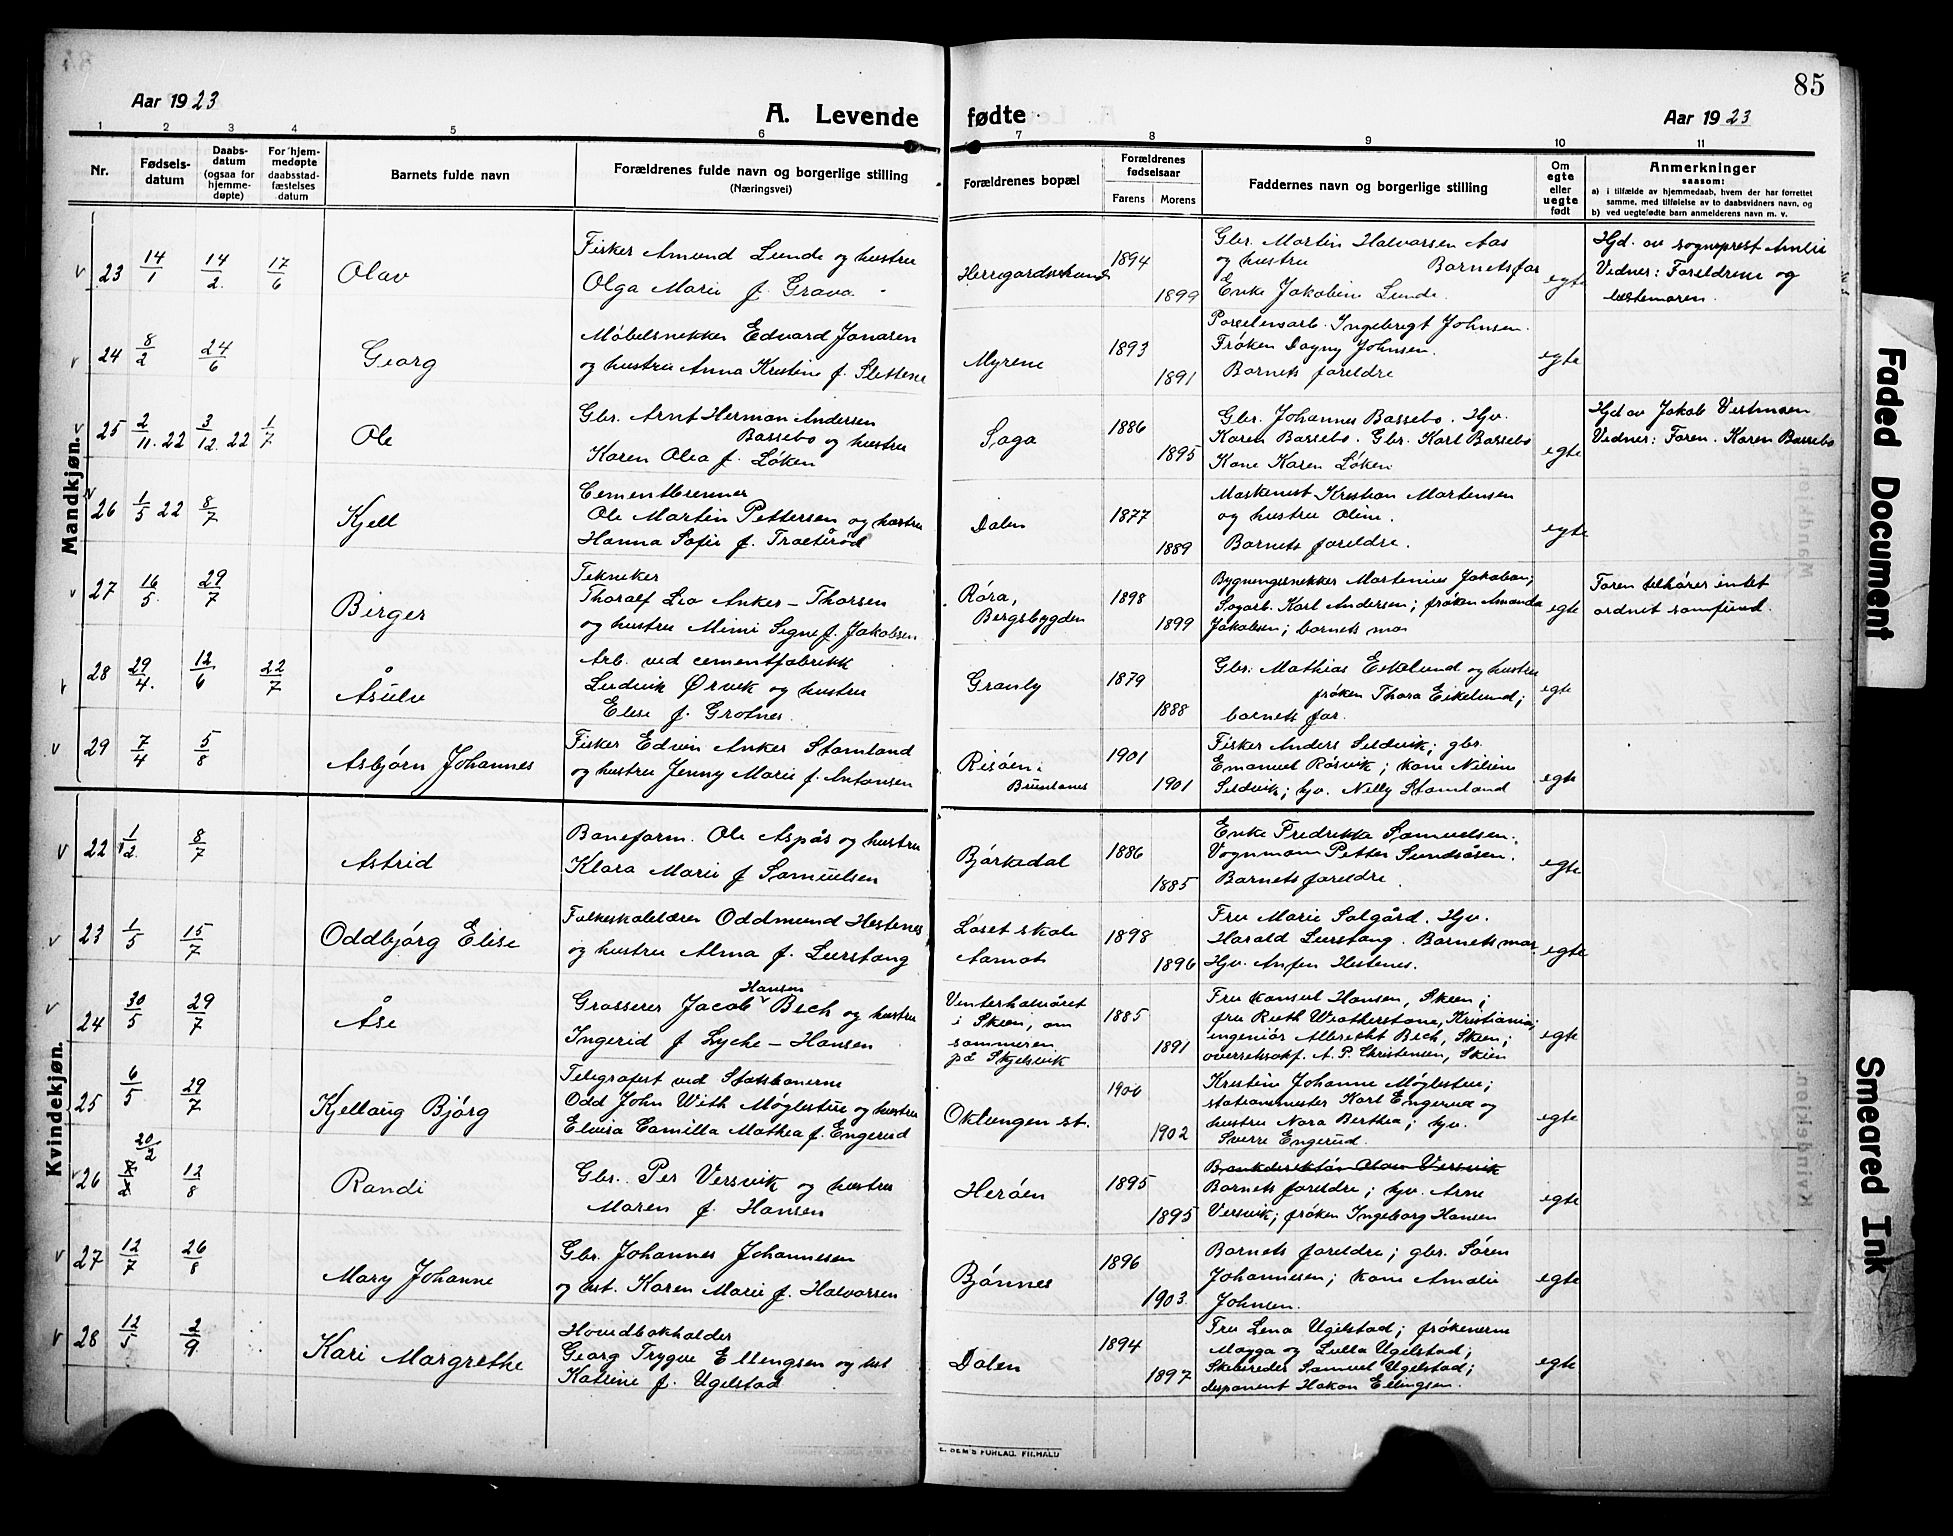 85
Aar 1923
A. Levende fødte
Aar 1923
1 2 3 4 5 6 7 8 9 10 11
Nr.
Fødsels-
datum
Daabs-
datum
(ogsaa for
hjemme-
døpte)
For hjem-
medøpte
daabsstad-
fæstelses
datum
Barnets fulde navn
Forældrenes fulde navn og borgerlige stilling
(Næringsvei)
Forældrenes bopæl
Forældrenes
fødselsaar
Farens Morens
Faddernes navn og borgerlige stilling
Om
egte
eller
uegte
født
Anmerkninger
saasom:
a) i tilfælde av hjemmedaab, hvem der har forrettet
samme, med tilføielse av to daabsvidners navn, og
b) ved uegtefødte barn anmelderens navn m. v.
Mandkjøn.
23 14/1 14/2. 17/6
Olav
Fisker Amund Lunde og hustru
Olga Marie f. Grava
1894
1899
Gbr. Martin Halvorsen Aas
og hustru Barnets far
Enke Jakobine Lunde.
egte
Hjd. av sogneprest Amlie
Vidner: Foreldrene og
bestemoren.
24 8/2 24/6
Georg
Møbelsnekker Edvard Jonasen
og hustru Anna Kristine f. Slettene
Myrene
1893
1891
Porselensarb. Ingebregt Johnsen.
Frøken Dagny Johnsen.
Barnets foreldre
egte
25 2/11. 22 3/12. 22 1/7
Ole
Gbr. Arnt Herman Andersen
Bassebo og hustru
Karen Olea f. Løken
Saga
1886
1895
Gbr. Johannes Bassebo. Hjv.
Karen Bassebo. Gbr. Karl Bassebo
Kone Karen Løken
egte
Hjd av Jakob Vestmoen
Vidner: Faren. Karen Bassebo
26 1/5 22 8/7
Kjell
Cementbrenner
Ole Martin Pettersen og hustru
Hanna Sofie f. Trosterød
Dalen
1877
1889
Maskinist Kristian Martensen
og hustru Oline.
Barnets foreldre.
egte
27 16/5. 29/7
Birger
Tekniker
Thoralf Leo Anker-Thorsen
og hustru Mimi Signe f. Jakobsen
Røra,
Bergsbygden
1898
1899
Bygningssnekker Martinius Jakobsen;
Sagarb. Karl Andersen; frøken Amanda
Jakobsen; barnets mor
egte
Faren tilhører intet
ordnet samfund.
28 29/4. 12/6 22/7
Åsulv
Arb. ved cementfabrikk
Ludvik Ørvik og hustru
Elise f. Grotnes.
Granly
1879
1888
Gbr. Mathias Eikelund og hustru
frøken Thora Eikelund;
barnets far.
egte
29 7/4 5/8
Asbjørn Johannes
Fisker Edvin Anker Stamland
og hustru Jenny Marie f. Antonsen
Risøen:
1901
1901
Fisker Anders Sildvik; gbr.
Emanuel Røsvik; kone Niline
Sildvik; hjv. Nelly Stamland
egte
Kvindekjøn.
22 1/2. 8/7
Astrid
Baneform. Ole Aspås og hustru
Klara Marie f Samuelsen
Bjørkedal
1886
1885
Enke Fredrikka Samuelsen.
Vognmann Petter Sundsåsen.
Barnets foreldre.
egte
23 1/5 15/7
Oddbjørg Elise
Folkeskolelærer Oddmund Hestenes
og hustru Alma f. Lurstang
Løset skole
Aamot
1898
1896
Fru Marie Solgård. Hjv.
Harald Lurstang. Barnets mor.
Hjv. Anfin Hestenes.
egte
24 30/5 29/7
Åse
Hansen
Grosserer Jacob Bech og hustru
Ingerid f Lyche-Hansen
Vinterhalvåret
i Skien, om
sommeren
på Skjelsvik
1885
1891
Fru konsul Hansen, Skien;
fru Ruth Weatherstone, Kristiania;
ingeniør Albrecht Bech, Skien;
overretssakf. A. P. Christensen, Skien
egte
25 6/5 29/7
Kjellaug Bjørg
Telegrafist ved Statsbanerne
Odd John With Møglestue og hustru
Elvira Camilla Mathea f. Engerud
Oklungen st.
1900
1902
Kristine Johanne Møglestue;
stationsmester Karl Engerud og
hustru Nora Berthea; hjv.
Sverre Engerud.
egte
20/2
26 12/8
Randi
Gbr. Per Versvik og hustru
Maren f. Hansen
Herøen
1895
1895
Bankdirektør Olav Versvik
Barnets foreldre; hjv. Arne
Versvik; frøken Ingeborg Hansen
egte
27 12/7 26/8
Mary Johanne
Gbr. Johannes Johannesen
og hst. Karen Marie f. Halvorsen
Bjønnes
1896
1903
Barnets foreldre; gbr. Søren
Johannesen; kone Amalie
Johnsen.
egte
28 12/5 2/9
Kari Margrethe
Hovedbokholder
Georg Trygve Ellingsen og hst
Katrine f. Ugelstad
Dalen
1894
1897
Fru Lena Ugelstad; frøknerne
Magga og Lulla Ugelstad;
Skibsreder Samuel Ugelstad;
disponent Hakon Ellingsen.
egte
E. SEM'S FORLAG. FR.HALD
Faded Document
Smeared Ink